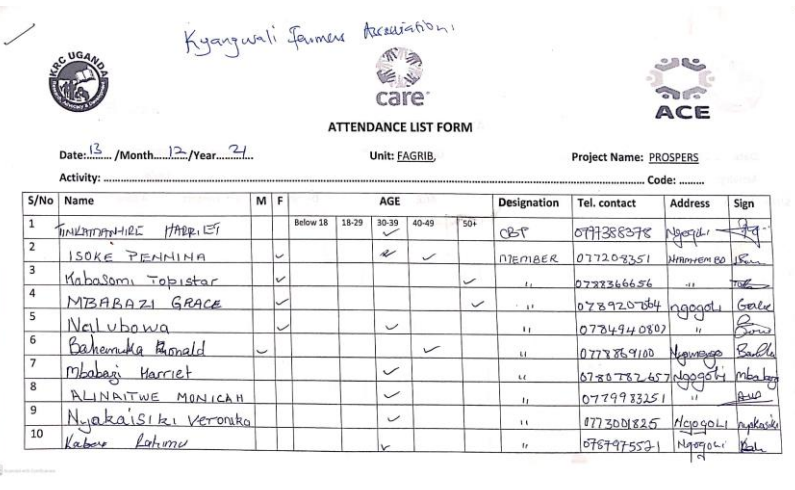 Kyangwali Farmers Association
KRC UGANDA
care
ACE
ATTENDANCE LIST FORM
Date: 13 /Month 12 /Year 21
Unit: FAGRIB,
Project Name: PROSPERS
Activity: Code:
S/No Name M F AGE Designation Tel. contact Address Sign
Below 18 18-29 30-39 40-49 50+
1 TINKAMANHIRE HARRIET ✓ CBT 0797388378 Ngogoli
2 ISOKE PENNINA ✓ ✓ MEMBER 077208351
3 Kabasomi Topistar ✓ ✓ " 0788366656 "
4 MBABAZI GRACE ✓ ✓ " 0789207664 ngogoli Grace
5 Nalubowa ✓ ✓ " 0784940807 "
6 Bahemuka Ronald ✓ ✓ " 0778869100
7 Mbabazi Harriet ✓ " 0780782657 Ngogoli mbabazi
8 ALINAITWE MONICAH ✓ " 0779983251 "
9 Nyakaisiki Veronika ✓ " 0773001825 Ngogoli nyakaisiki
10 ✓ " 0787975521 Ngogoli